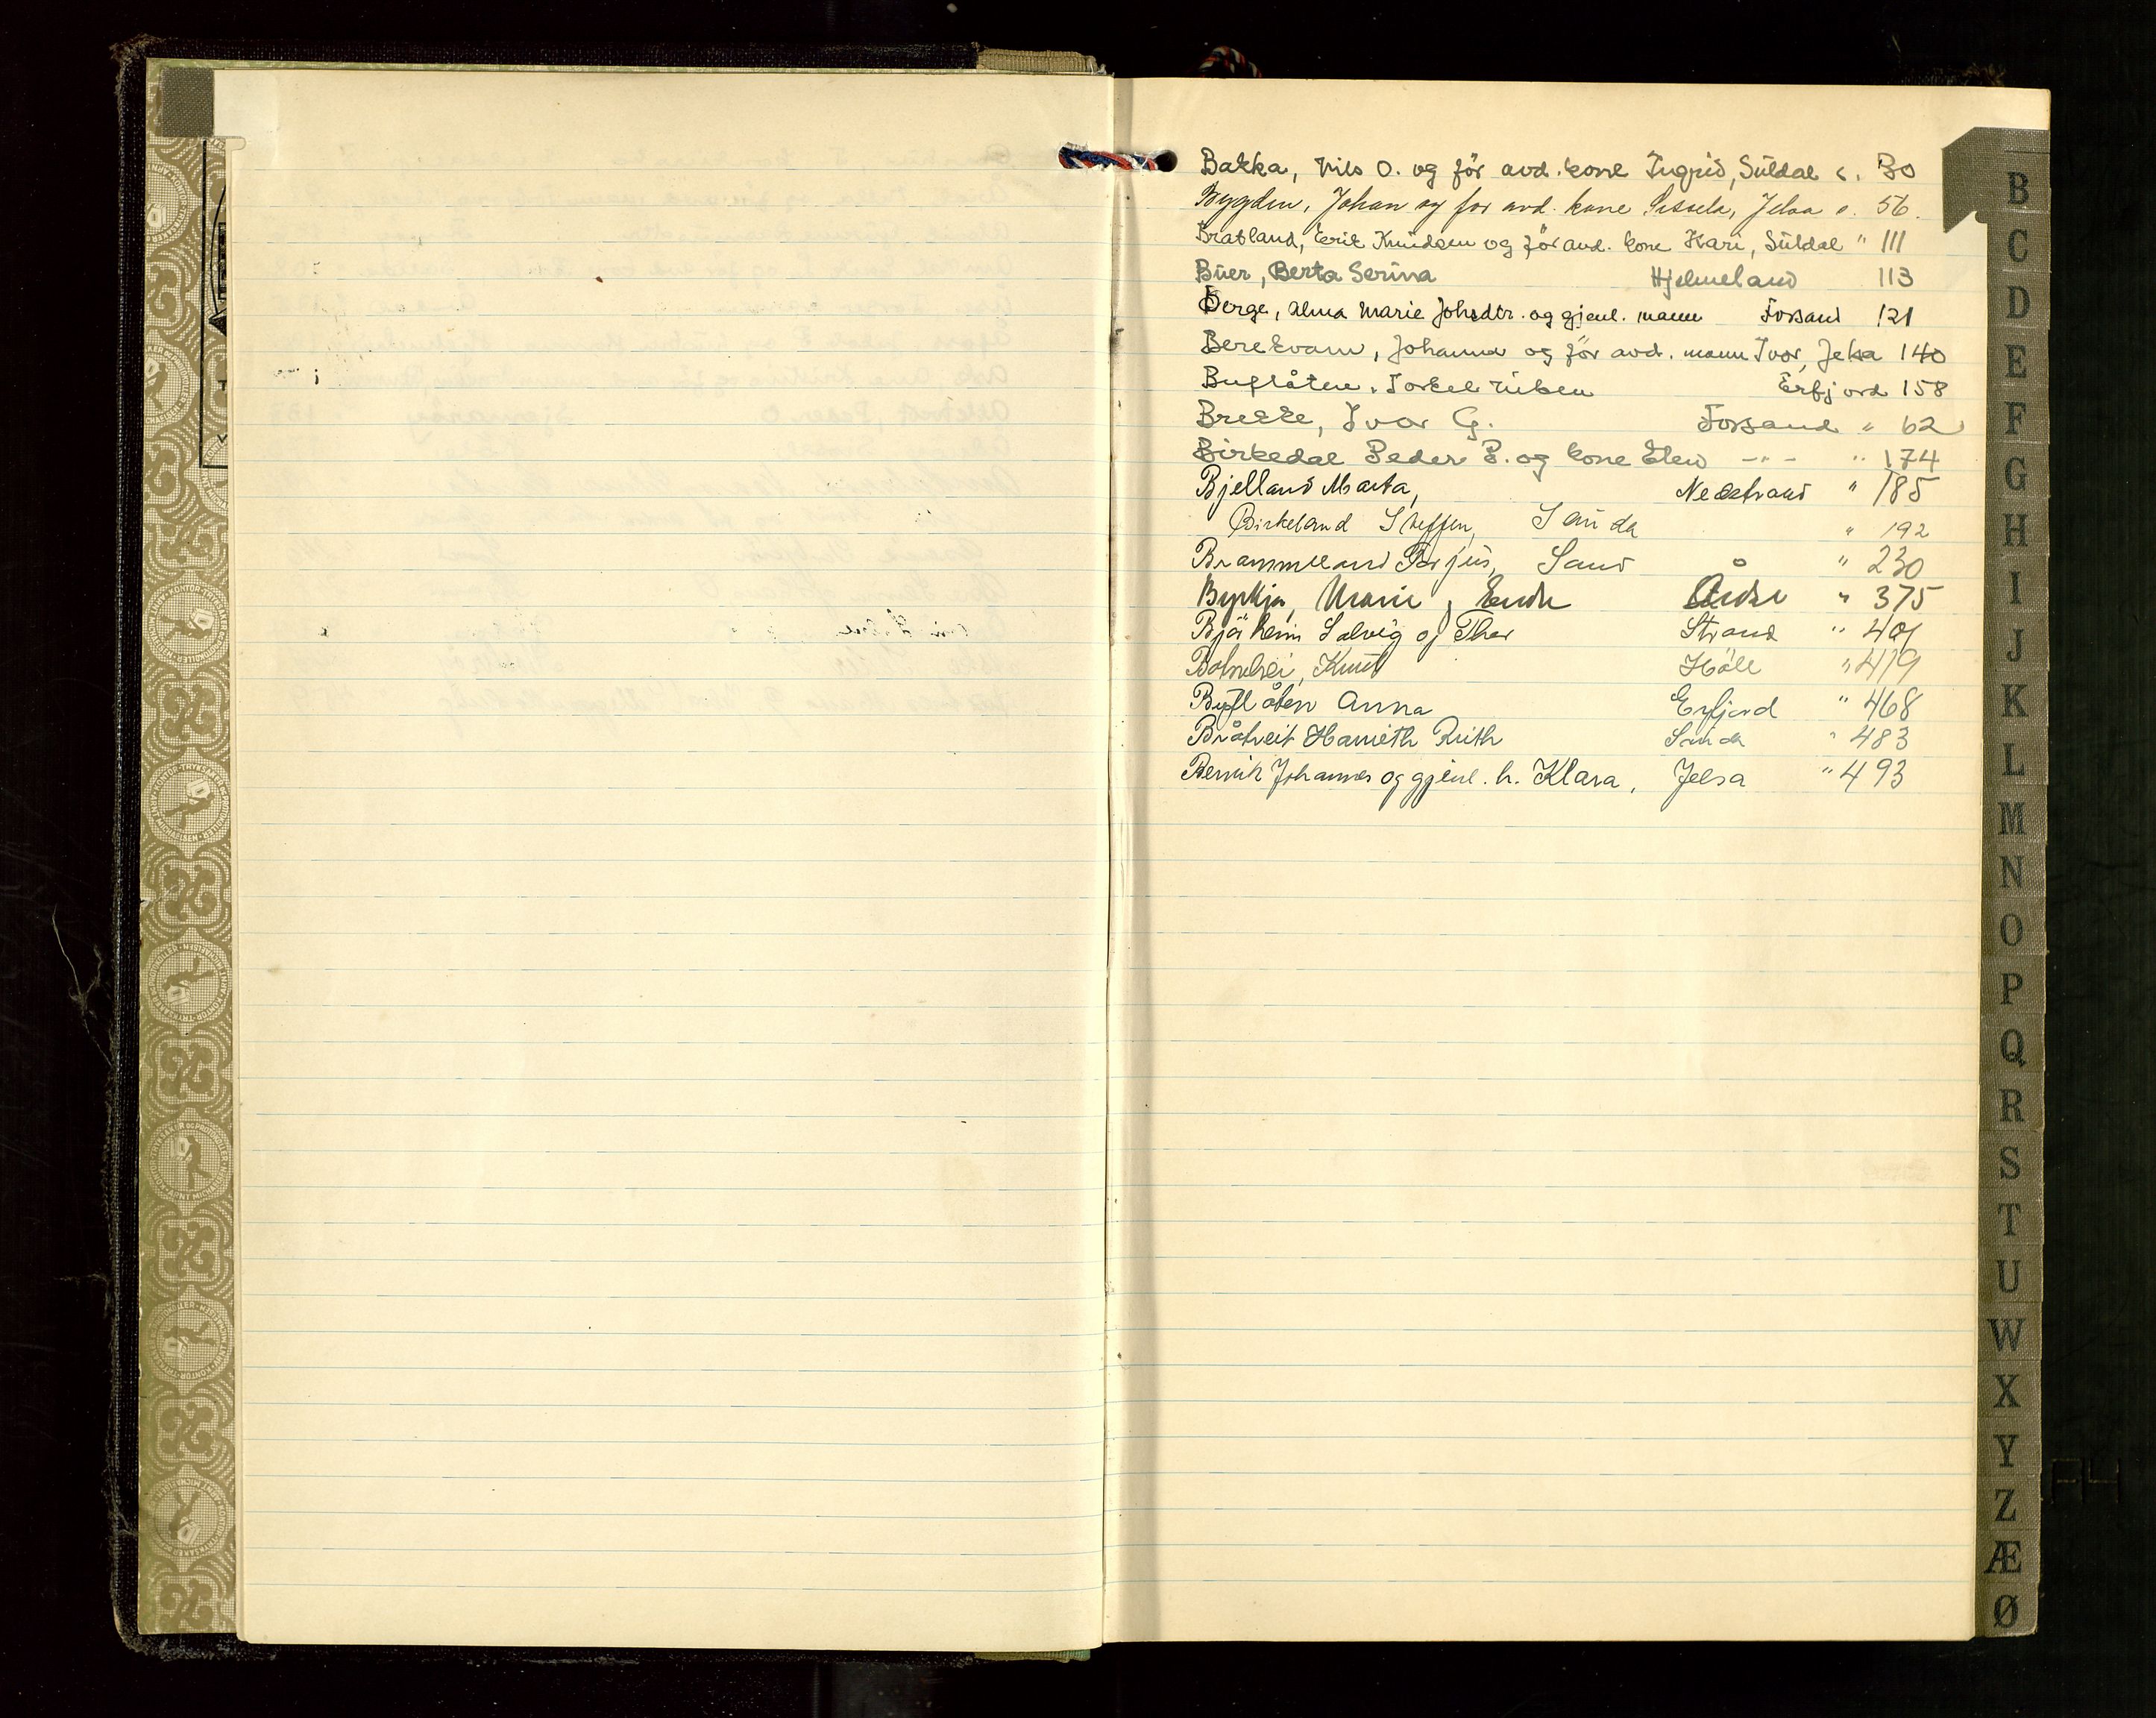 Bakka, Nils O. og för avd. kone Ingrid, Suldal s. 30
Bygden, Johan og for avd. kone Sissela, Jelsa s. 56.
Bratland, Erik Knudsen og för avd. kone Kari, Suldal " 111
Buer, Berta Serina Hjelmeland 113
Berge, Alma Marie Johsdtr. og gjenl. mann Forsand 121
Berekvam, Johanna og för avd. mann Ivor, Jelsa 140
Buflåten, Torkel Erfjord 158
Brekke, Ivar G. Forsand " 62
Birkedal Peder P. og kone Elen - " - " 174
Bjelland Marta, Nedstrand " 185
Birkeland Steffen, Sauda " 192
Brommeland Torjus, Sand " 230
Byrkja, Marie, Endre Årdal " 375
Bjørheim Solveig og Thor Strand " 401
Botnehei, Knut Höle " 419
Buflåten Anna Erfjord " 468
Bråtveit Harrieth Ruth Sauda " 483
Bervik Johannes og gjenl. h. Klara, Jelsa " 493
B
C
D
E
F
G
H
I
J
K
L
M
N
O
P
Q
R
S
T
U
W
X
Y
Z
Æ
Ø